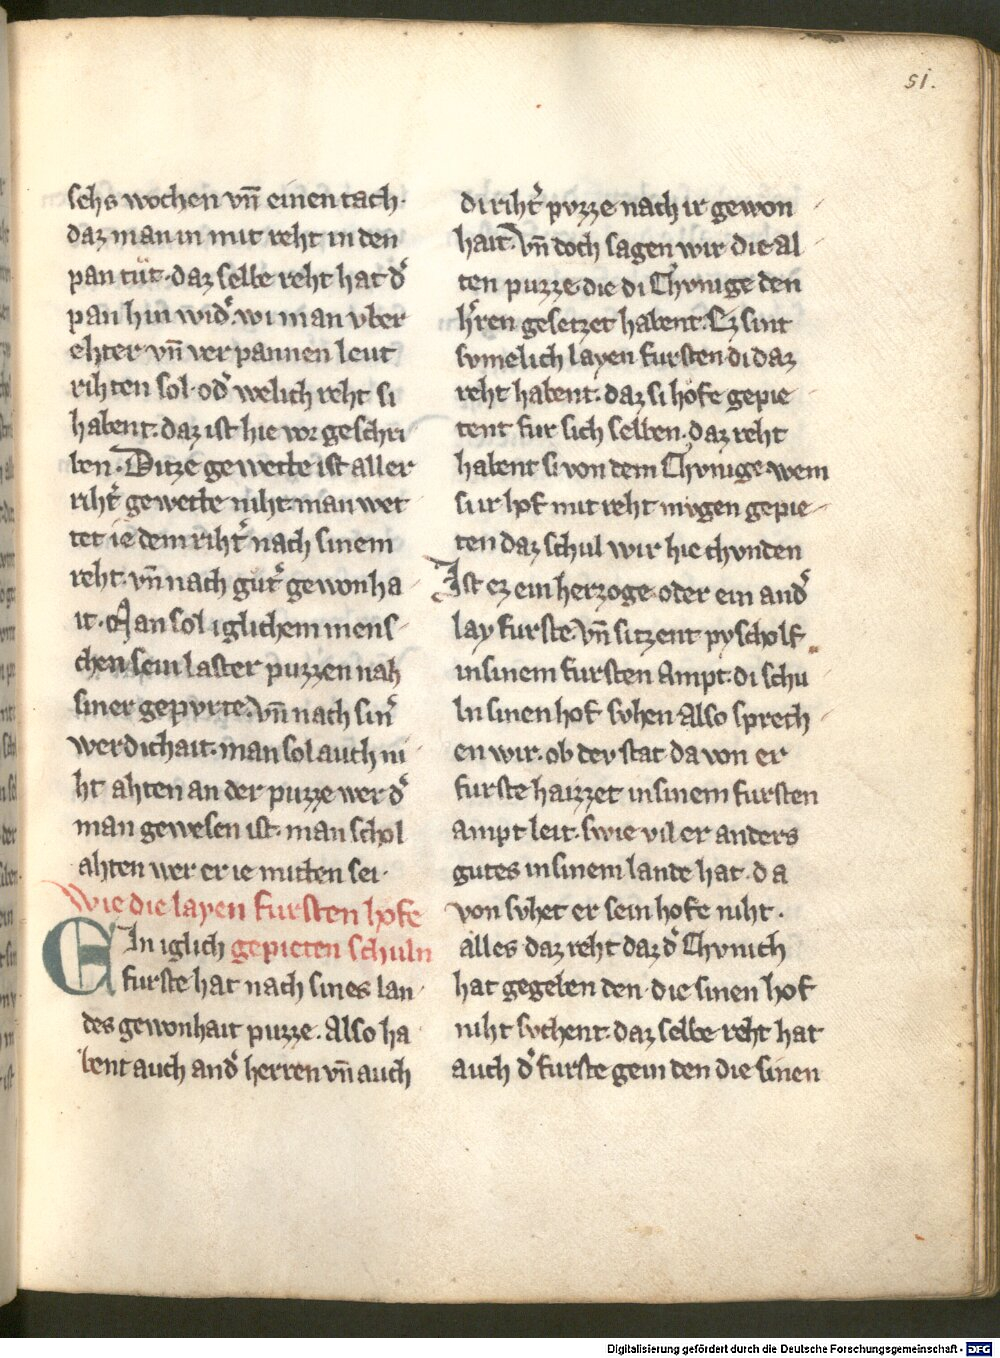 51.
sehs wochen vn̄ einen tach·
daz man in mit reht in den
pan tut·daz selbe reht hat d̾
pan hin wid̾·wi man vber
ehter·vn̄ ver pannen leut
rihten sol·od̾ welich reht si
habent·daz ist hie vor geschri
ben·Ditze gewette ist aller
riht̾ gewette niht·man wet
tet ie dem riht̾ nach sinem
reht·vn̄ nach gut̾ gewonha
it·Man sol iglichem mens
chen sein laster puzzen nah
siner gepvrte·vn̄ nach sin̾
werdichait·man sol auch ni
ht ahten an der puzze wer d̾
man gewesen ist·man schol
ahten wer er ie mitten sei·
Wie die layen fursten hofe
EIn iglich gepieten schuln
furste hat nach sines lan
des gewonhait puzze·Also ha
bent auch and̾ herren vn̄ auch
di riht̾ pvzze nach ir gewon
hait·vn̄ doch sagen wir die al
ten puzze·die di Chvnige den
h̾ren gesetzet habent·Ez sint
svmelich layen fursten·di daz
reht habent·daz si hofe gepie
tent fur sich selben·daz reht
habent si von dem Chvnige·wem
si ir hof mit reht mvgen gepie
ten daz schul wir hie chvnden
Ist ez ein herzoge·oder ein and̾
lay furste·vn̄ sitzent pyscholf
in sinem fursten Ampt·di schu
ln sinen hof svhen·Also sprech
en wir·ob dev stat da von er
furste haizzet in sinem fursten
ampt leit·swie vil er anders
gutes in sinem lande hat·da
von svhet er sein hofe niht·
alles daz reht daz d̾ Chvnich
hat gegeben den·die sinen hof
niht svchent·daz selbe reht hat
auch d̾ furste gein den die sinen
Digitalisierung gefördert durch die Deutsche Forschungsgemeinschaft - DFG